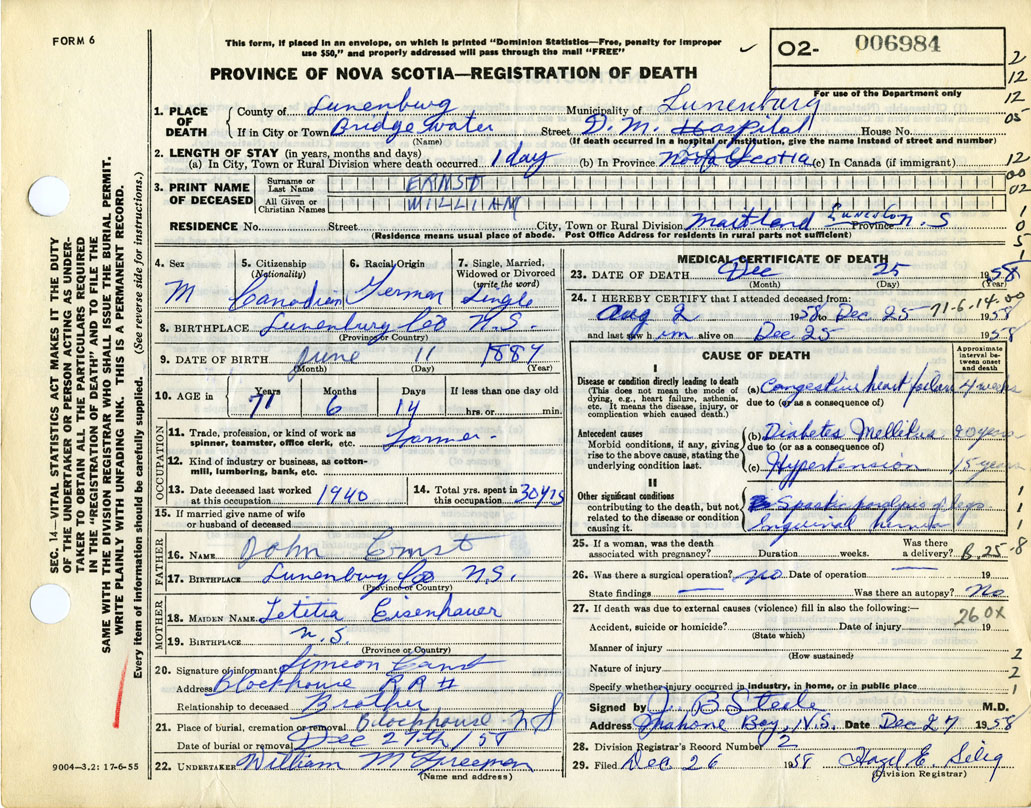 FORM 6
This form, if placed in an envelope, on which is printed "Dominion Statistics—Free, penalty for improper
use $50," and properly addressed will pass through the mail "FREE"
O2- 006984
For use of the Department only
PROVINCE OF NOVA SCOTIA—REGISTRATION OF DEATH
1. PLACE OF DEATH County of Lunenburg Municipality of Lunenburg
If in City or Town Bridgewater Street D. M. Hospital House No.
(Name) (If death occurred in a hospital or institution, give the name instead of street and number)
2. LENGTH OF STAY (in years, months and days)
(a) In City, Town or Rural Division where death occurred 1 day (b) In Province Nova Scotia (c) In Canada (if immigrant)
3. PRINT NAME OF DECEASED
Surname or Last Name ERNST
All Given or Christian Names WILLIAM
RESIDENCE No. Street City, Town or Rural Division Maitland Province N.S
(Residence means usual place of abode. Post Office Address for residents in rural parts not sufficient)
4. Sex M
5. Citizenship (Nationality) Canadian
6. Racial Origin German
7. Single, Married, Widowed or Divorced (write the word) Single
8. BIRTHPLACE Lunenburg Co N.S.
(Province or Country)
9. DATE OF BIRTH June 11 1887
(Month) (Day) (Year)
10. AGE in Years 71 Months 6 Days 14 If less than one day old hrs. or min.
OCCUPATION
11. Trade, profession, or kind of work as spinner, teamster, office clerk, etc. Farmer-
12. Kind of industry or business, as cotton-mill, lumbering, bank, etc.
13. Date deceased last worked at this occupation 1940
14. Total yrs. spent in this occupation 30 yrs
15. If married give name of wife or husband of deceased
FATHER
16. NAME John Ernst
17. BIRTHPLACE Lunenburg Co N.S.
(Province or Country)
MOTHER
18. MAIDEN NAME Letitia Eisenhauer
19. BIRTHPLACE N.S.
(Province or Country)
20. Signature of informant Simeon Ernst
Address Blockhouse RR #
Relationship to deceased Brother
21. Place of burial, cremation or removal Blockhouse N S
Date of burial or removal Dec 27th/58
22. UNDERTAKER William M
(Name and address)
9004—3.2: 17-6-55
MEDICAL CERTIFICATE OF DEATH
23. DATE OF DEATH Dec 25 1958
(Month) (Day) (Year)
24. I HEREBY CERTIFY that I attended deceased from:
Aug 2 1958 to Dec. 25 1958
71-6-14.00
and last saw him alive on Dec 25 1958
CAUSE OF DEATH
Approximate interval between onset and death
I
Disease or condition directly leading to death
(This does not mean the mode of dying, e.g., heart failure, asthenia, etc. It means the disease, injury, or complication which caused death.)
(a) Congestive heart failure 4 weeks
due to (or as a consequence of)
Antecedent causes
Morbid conditions, if any, giving rise to the above cause, stating the underlying condition last.
(b) Diabetes Mellitus 20 years
due to (or as a consequence of)
(c) Hypertension 15 years
II
Other significant conditions contributing to the death, but not related to the disease or condition causing it.
Spastic paralysis of legs
Inguinal hernia
25. If a woman, was the death associated with pregnancy? Duration weeks. Was there a delivery? B. 25-8
26. Was there a surgical operation? no Date of operation — 19
State findings — Was there an autopsy? No
27. If death was due to external causes (violence) fill in also the following:—
Accident, suicide or homicide? Date of injury 19
(State which)
260X
Manner of injury
(How sustained)
Nature of injury
Specify whether injury occurred in industry, in home, or in public place
Signed by J. B Steele M.D.
Address Mahone Bay, N.S. Date Dec 27 1958
28. Division Registrar's Record Number 2
29. Filed Dec 26 1958 Hazel E. Selig
(Division Registrar)
SEC. 14—VITAL STATISTICS ACT MAKES IT THE DUTY
OF THE UNDERTAKER OR PERSON ACTING AS UNDER-
TAKER TO OBTAIN ALL THE PARTICULARS REQUIRED
IN THE "REGISTRATION OF DEATH" AND TO FILE THE
SAME WITH THE DIVISION REGISTRAR WHO SHALL ISSUE THE BURIAL PERMIT.
WRITE PLAINLY WITH UNFADING INK. THIS IS A PERMANENT RECORD.
Every item of information should be carefully supplied. (See reverse side for instructions.)
2
12
12
05
12
00
02
1
0
5
1
1
1
1
2
2
1